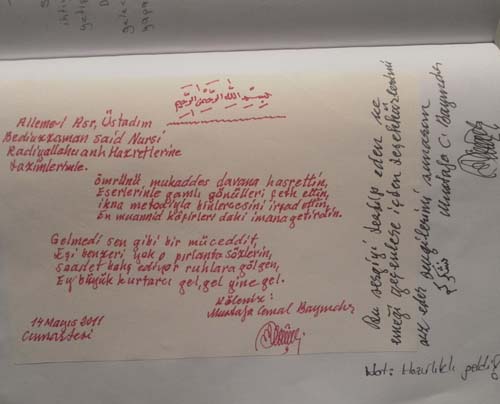 بسم الله الرحمن الرحيم
Allame-i Asr, Üstadım
Bediuzzaman Said Nursi
Radiyallahu anh Hazretlerine
tazimlerimle.
Ömrünü mukaddes davana hasrettin,
Eserlerinle gamlı gönülleri şen ettin,
ikna metoduyla binlercesini irşad ettin,
En muannid kâfirleri dahi imana getirdin.
Gelmedi sen gibi bir müceddit,
Eşi benzeri yok o pırlanta sözlerin,
Saadet bahş ediyor ruhlara gölgen,
Ey büyük kurtarıcı gel, gel yine gel.
Köleniz:
Mustafa Cemal Baymdır
14 Mayıs 2011
Cumartesi
Bu sergiyi tertip eden ve
emeği geçenlere içten teşekkürlerimi
arz eder sevgilerimi sunarım
Mustafa C. Baymdır
Not: Hazırlıklı geldiğ